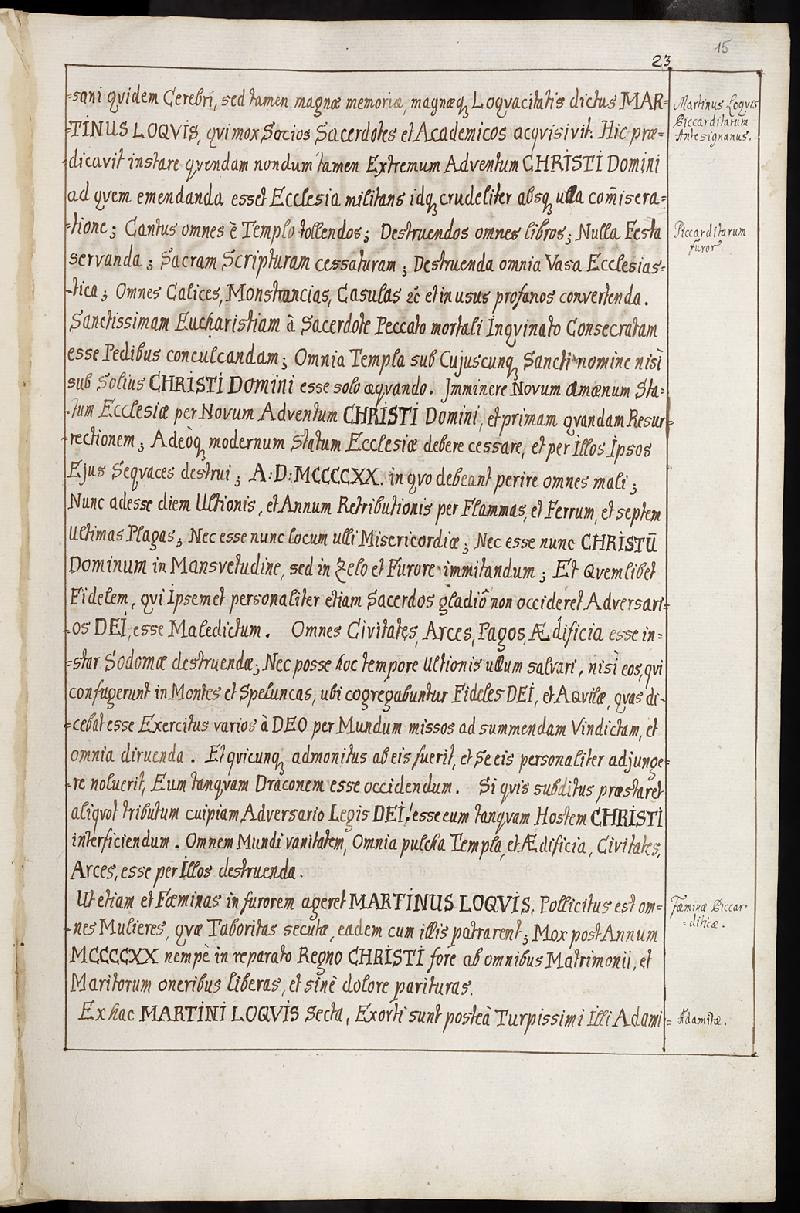 15
23
-sani qvidem Cerebri, sed tamen magnæ memoriæ, magnæq; Loqvacitatis dictus MAR-
-TINUS LOQVIS, qvi mox Socios Sacerdotes et Academicos acqvisivit. Hic præ-
-dicavit instare qvendam nondum tamen Extremum Adventum CHRISTI Domini
ad qvem emendanda esset Ecclesia militans idq; crudeliter absq; ulla com̄isera-
-tione; Cantus omnes è Templo tollendos; Destruendos omnes libros; Nulla Festa
servanda; Sacram Scripturam cessaturam; Destruenda omnia Vasa Ecclesias-
-tica; Omnes Calices, Monstrancias, Casulas &c et in usus profanos convertenda.
Sanctissimam Eucharistiam à Sacerdote Peccato mortali Inqvinato Consecratam
esse Pedibus conculcandam; Omnia Templa sub Cujuscunq; Sancti nomine nisi
sub Solius CHRISTI Domini esse solo æqvando. Imminere Novum amænum Sta-
-tum Ecclesiæ per Novum Adventum CHRISTI Domini, et primam qvandam Resur
-rectionem; Adeòq; modernum Statum Ecclesiæ debere cessare, et per Illos Ipsos
Ejus Seqvaces destrui; A:D:MCCCCXX. in qvo debeant perire omnes mali;
Nunc adesse diem Ultionis, et Annum Retributionis per Flammas, et Ferrum, et septem
Ultimas Plagas; Nec esse nunc locum ulli Misericordiæ; Nec esse nunc CHRISTŪ
Dominum in Mansvetudine, sed in Zelo et Furore immitandum; Et Qvemlibet
Fidelem, qvi Ipsemet personaliter etiam Sacerdos gladiô non occideret Adversari-
-os DEI, esse Maledictum. Omnes Civitates, Arces, Pagos, Ædificia esse in-
-star Sodomæ destruendæ; Nec posse hoc tempore Ultionis ullum salvari, nisi eos, qvi
confugerunt in Montes et Speluncas, ubi cogregabuntur Fideles DEI, et Aqvilæ, qvas di-
-cebat esse Exercitus varios à DEO per Mundum missos ad summendam Vindictam, et
omnia diruenda. Et qvicunq; admonitus ab eis fuerit, et se eis personaliter adjunge-
-re noluerit, Eum tanqvam Draconem esse occidendum. Si qvis subditus præstaret
aliqvot tributum cuipiam Adversario Legis DEI, esse eum tanqvam Hostem CHRISTI
interficiendum. Omnem Mundi vanitatem, Omnia pulcha Templa, et Ædificia, Civitates,
Arces, esse per Illos destruenda.
Ut etiam et Fœminas in furorem ageret MARTINUS LOQVIS. Pollicitus est om-
-nes Mulieres, qvæ Taboritas secutæ, eadem cum illis patrarent; Mox post Annum
MCCCCXX nempè in reparato Regno CHRISTI fore ab omnibus Matrimonii, et
Maritorum oneribus liberas, et sinè dolore parituras.
Ex hac MARTINI LOQVIS Secta, Exorti sunt posteà Turpissimi Illi Adami-
Martinus Loqvis
Piccarditarum
Antesignanus.
Piccarditarum
furor
Fæminæ Piccar-
-diticæ.
Adamitæ.